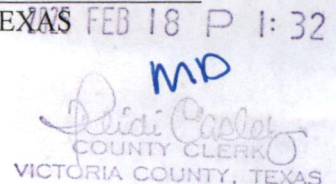 EXAS 2025 FEB 18 P 1:32
MD
Heidi Easley
COUNTY CLERK
VICTORIA COUNTY, TEXAS